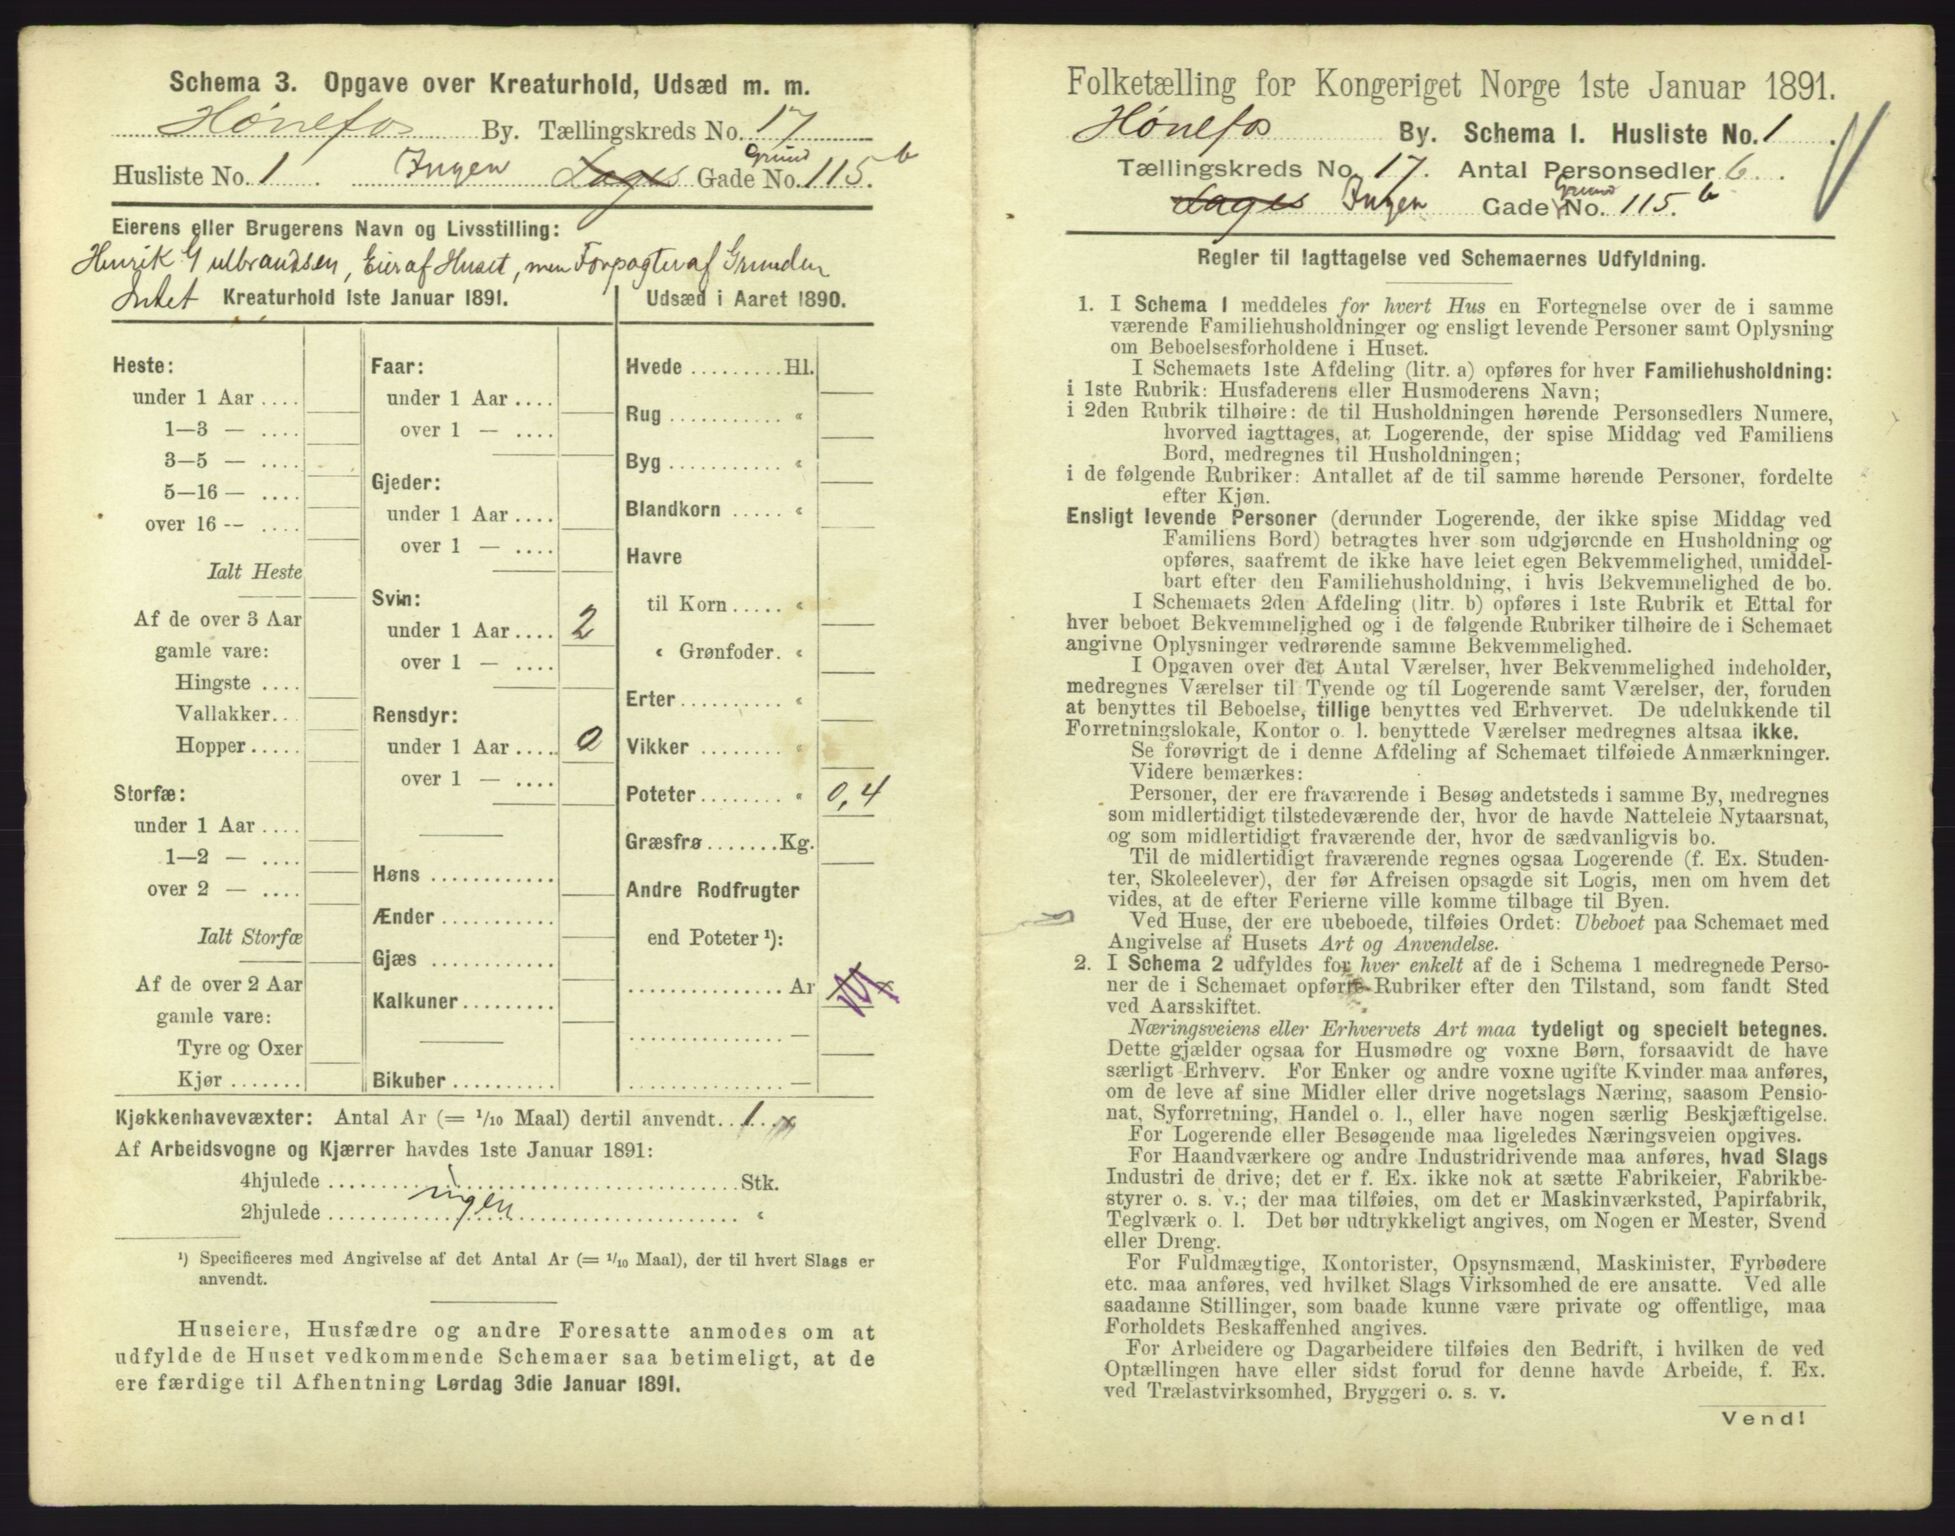 Schema 3. Opgave over Kreaturhold, Udsæd m. m.
Hønefos By. Tællingskreds No. 17
Husliste No. 1 Ingen Lages Gade Grund No. 115 b
Eierens eller Brugerens Navn og Livsstilling:
Henrik Gulbrandsen, Eier af Huset, men Forpagter af Grunden
Intet Kreaturhold 1ste Januar 1891.
Heste:
under 1 Aar ....
1—3 — ....
3—5 — ....
5—16 — ....
over 16 -- ....
Ialt Heste
Af de over 3 Aar
gamle vare:
Hingste ....
Vallakker...
Hopper.....
Storfæ:
under 1 Aar ....
1—2 — ....
over 2 — ....
Ialt Storfæ
Af de over 2 Aar
gamle vare:
Tyre og Oxer
Kjør.......
Faar:
under 1 Aar ....
over 1 — ....
Gjeder:
under 1 Aar ....
over 1 — ....
Svin:
under 1 Aar .... 2
over 1 — ....
Rensdyr:
under 1 Aar .... 0
over 1 — ....
Høns ............
Ænder ...........
Gjæs ............
Kalkuner.........
Bikuber ..........
Udsæd i Aaret 1890.
Hvede .........Hl.
Rug ........... «
Byg ........... «
Blandkorn ..... «
Havre
til Korn..... «
« Grønfoder. «
Erter.......... «
Vikker ........ «
Poteter........ « 0,4
Græsfrø.......Kg.
Andre Rodfrugter
end Poteter ¹):
............... Ar
............... —
............... —
Kjøkkenhavevæxter: Antal Ar (= 1/10 Maal) dertil anvendt.. 1 x
Af Arbeidsvogne og Kjærrer havdes 1ste Januar 1891:
4hjulede ........ Stk.
ingen
2hjulede ........ «
¹) Specificeres med Angivelse af det Antal Ar (= 1/10 Maal), der til hvert Slags er
anvendt.
Huseiere, Husfædre og andre Foresatte anmodes om at
udfylde de Huset vedkommende Schemaer saa betimeligt, at de
ere færdige til Afhentning Lørdag 3die Januar 1891.
Folketælling for Kongeriget Norge 1ste Januar 1891.
Hønefos By. Schema I. Husliste No. 1
Tællingskreds No. 17. Antal Personsedler 6
Lages Ingen Gade Grund No. 115. b
Regler til Iagttagelse ved Schemaernes Udfyldning.
1. I Schema I meddeles for hvert Hus en Fortegnelse over de i samme
værende Familiehusholdninger og ensligt levende Personer samt Oplysning
om Beboelsesforholdene i Huset.
I Schemaets 1ste Afdeling (litr. a) opføres for hver Familiehusholdning:
i 1ste Rubrik: Husfaderens eller Husmoderens Navn;
i 2den Rubrik tilhøire: de til Husholdningen hørende Personsedlers Numere,
hvorved iagttages, at Logerende, der spise Middag ved Familiens
Bord, medregnes til Husholdningen;
i de følgende Rubriker: Antallet af de til samme hørende Personer, fordelte
efter Kjøn.
Ensligt levende Personer (derunder Logerende, der ikke spise Middag ved
Familiens Bord) betragtes hver som udgjørende en Husholdning og
opføres, saafremt de ikke have leiet egen Bekvemmelighed, umiddel-
bart efter den Familiehusholdning, i hvis Bekvemmelighed de bo.
I Schemaets 2den Afdeling (litr. b) opføres i 1ste Rubrik et Ettal for
hver beboet Bekvemmelighed og i de følgende Rubriker tilhøire de i Schemaet
angivne Oplysninger vedrørende samme Bekvemmelighed.
I Opgaven over det Antal Værelser, hver Bekvemmelighed indeholder,
medregnes Værelser til Tyende og til Logerende samt Værelser, der, foruden
at benyttes til Beboelse, tillige benyttes ved Erhvervet. De udelukkende til
Forretningslokale, Kontor o. l. benyttede Værelser medregnes altsaa ikke.
Se forøvrigt de i denne Afdeling af Schemaet tilføiede Anmærkninger.
Videre bemærkes:
Personer, der ere fraværende i Besøg andetsteds i samme By, medregnes
som midlertidigt tilstedeværende der, hvor de havde Natteleie Nytaarsnat,
og som midlertidigt fraværende der, hvor de sædvanligvis bo.
Til de midlertidigt fraværende regnes ogsaa Logerende (f. Ex. Studen-
ter, Skoleelever), der før Afreisen opsagde sit Logis, men om hvem det
vides, at de efter Ferierne ville komme tilbage til Byen.
Ved Huse, der ere ubeboede, tilføies Ordet: Ubeboet paa Schemaet med
Angivelse af Husets Art og Anvendelse.
2. I Schema 2 udfyldes for hver enkelt af de i Schema 1 medregnede Perso-
ner de i Schemaet opførte Rubriker efter den Tilstand, som fandt Sted
ved Aarsskiftet.
Næringsveiens eller Erhvervets Art maa tydeligt og specielt betegnes.
Dette gjælder ogsaa for Husmødre og voxne Børn, forsaavidt de have
særligt Erhverv. For Enker og andre voxne ugifte Kvinder maa anføres,
om de leve af sine Midler eller drive nogetslags Næring, saasom Pensio-
nat, Syforretning, Handel o. l., eller have nogen særlig Beskjæftigelse.
For Logerende eller Besøgende maa ligeledes Næringsveien opgives.
For Haandværkere og andre Industridrivende maa anføres, hvad Slags
Industri de drive; det er f. Ex. ikke nok at sætte Fabrikeier, Fabrikbe-
styrer o. s. v.; der maa tilføies, om det er Maskinværksted, Papirfabrik,
Teglværk o. l. Det bør udtrykkeligt angives, om Nogen er Mester, Svend
eller Dreng.
For Fuldmægtige, Kontorister, Opsynsmænd, Maskinister, Fyrbødere
etc. maa anføres, ved hvilket Slags Virksomhed de ere ansatte. Ved alle
saadanne Stillinger, som baade kunne være private og offentlige, maa
Forholdets Beskaffenhed angives.
For Arbeidere og Dagarbeidere tilføies den Bedrift, i hvilken de ved
Optællingen have eller sidst forud for denne havde Arbeide, f. Ex.
ved Trælastvirksomhed, Bryggeri o. s. v.
Vend!